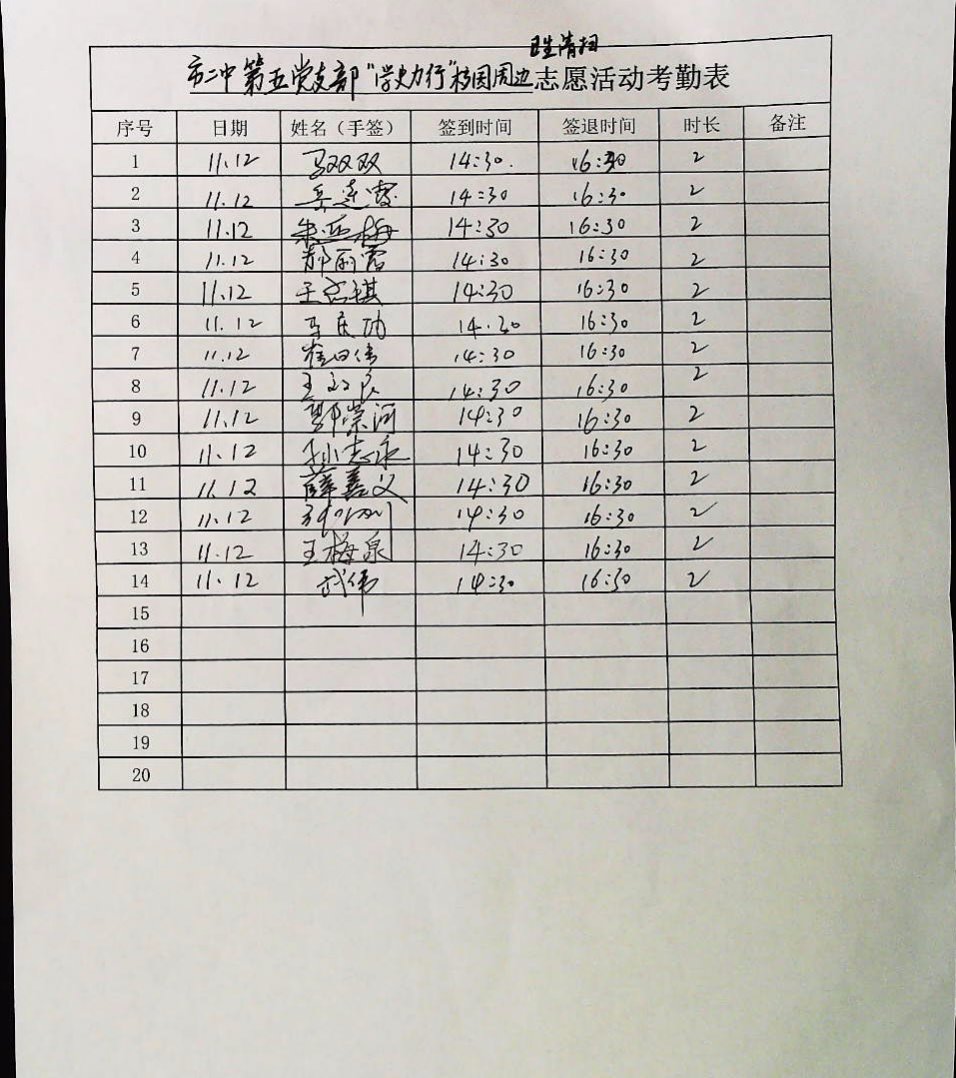 卫生清扫
市二中第五党支部"学史力行"校园周边志愿活动考勤表
序号 日期 姓名（手签） 签到时间 签退时间 时长 备注
1 11.12 马双双 14:30. 16:30 2
2 11.12 岳连霞 14:30 16:30 2
3 11.12 朱亚梅 14:30 16:30 2
4 11.12 郝丽露 14:30 16:30 2
5 11.12 14:30 16:30 2
6 11.12 14.30 16:30 2
7 11.12 崔日伟 14:30 16:30 2
8 11.12 14:30 16:30 2
9 11.12 郭崇河 14:30 16:30 2
10 11.12 孙志永 14:30 16:30 2
11 11.12 薛嘉义 14:30 16:30 2
12 11.12 14:30 16:30 2
13 11.12 王梅泉 14:30 16:30 2
14 11.12 武伟 14:30 16:30 2
15
16
17
18
19
20